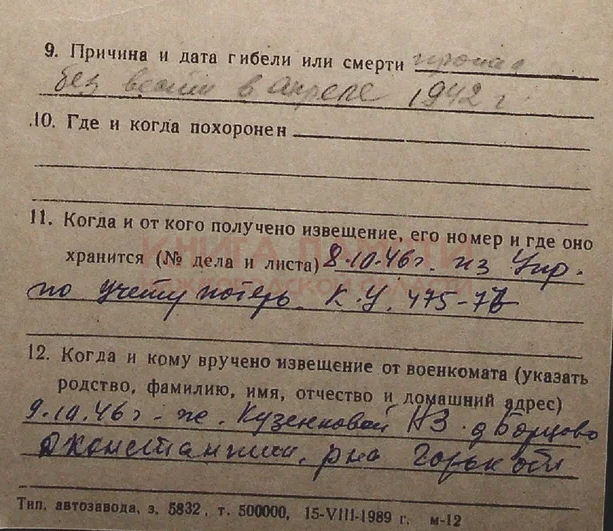 9. Причина и дата гибели или смерти пропал
без вести в апреле 1942 г
10. Где и когда похоронен
11. Когда и от кого получено извещение, его номер и где оно
хранится (№ дела и листа) 8.10.46г. из Упр.
по учету потерь. К.У. 475-7
КНИГА ПАМЯТИ
12. Когда и кому вручено извещение от военкомата (указать
родство, фамилию, имя, отчество и домашний адрес)
9.10.46г - же. Кузенковой д Борцово
р на Горьк обл
Тип. автозавода, з. 5832, т. 500000, 15-VIII-1989 г. м-12